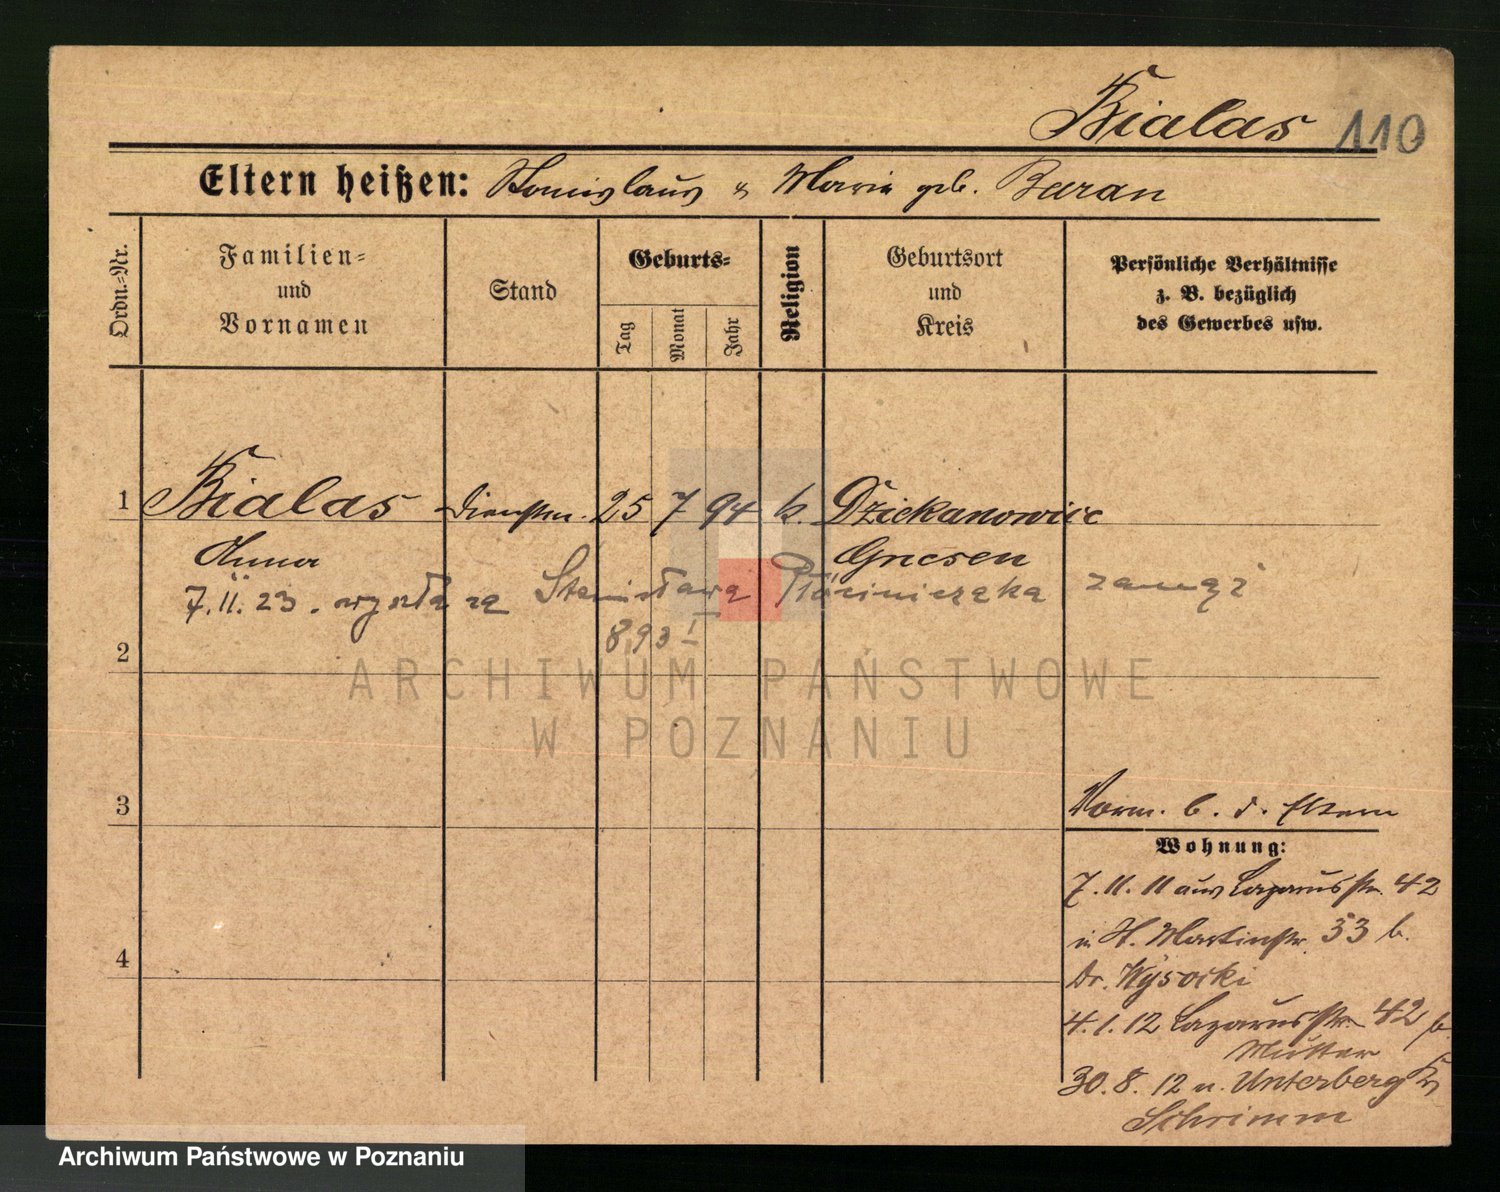 Bialas 110
Eltern heißen: Stanislaus & Marie geb. Baran
Ordn.-Nr.
Familien-
und
Vornamen
Stand
Geburts-
Tag
Monat
Jahr
Religion
Geburtsort
und
Kreis
Persönliche Verhältnisse
z. B. bezüglich
des Gewerbes usw.
1 Bialas Dienstm. 25 7 94 k. Dziekanowice
Anna Gnesen
7.11.23. wyszła za Stanisława Płócieniczaka zamąż
893 I
2
ARCHIWUM PAŃSTWOWE
W POZNANIU
3
Vorm. b. d. Eltern
Wohnung:
7.11.11 aus Lazarusstr. 42
in St. Martinstr. 53 b.
Dr. Wysocki
4
4.1.12 Lazarusstr. 42 b.
Mutter
30.8.12 n. Unterberg Kr
Schrimm
Archiwum Państwowe w Poznaniu